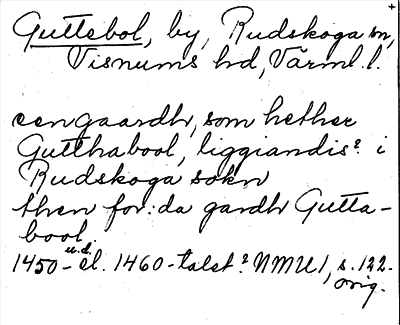 Guttebol, by, Rudskoga sn,
Visnums hd, Värml. l.
een gaardh, som hether
Gutthabool, liggiandis? i
Rudskoga sokn
then for:da gardh Gutta-
bool
u.d.
1450- el. 1460-talet? NMU 1, s. 122.
orig.